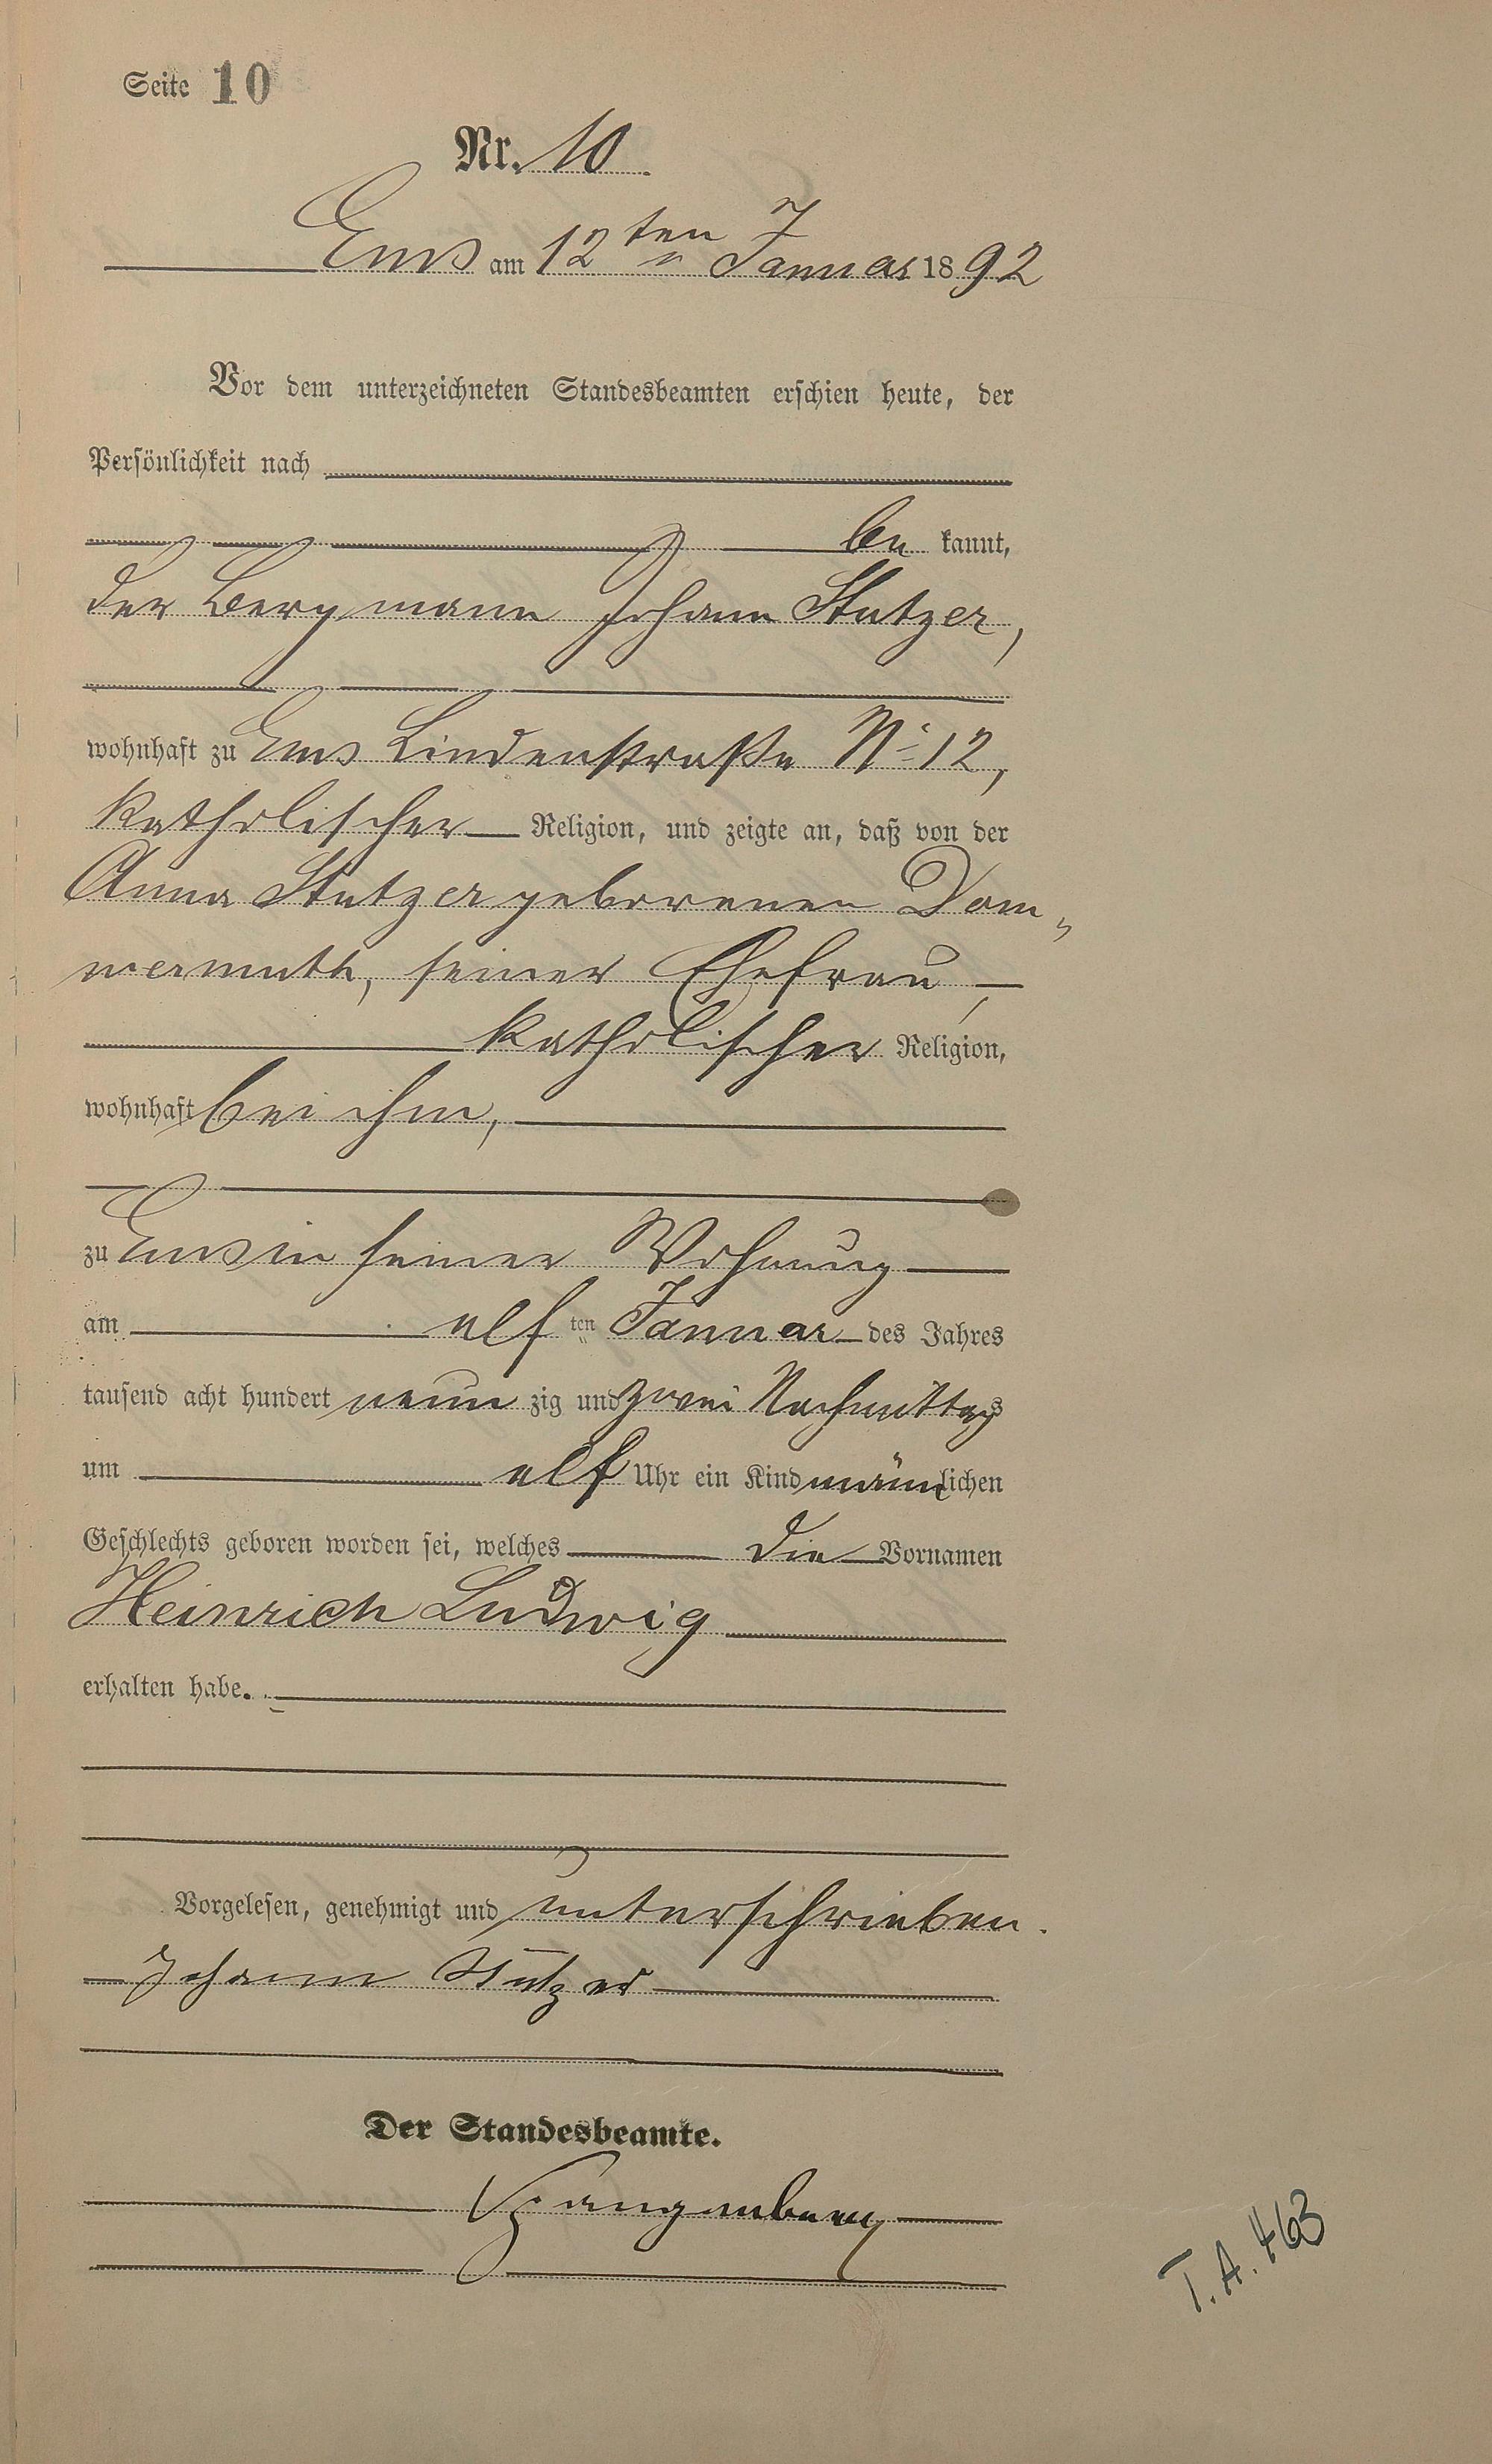 Seite 10
Nr. 10.
Ems am 12ten Januar 1892
Vor dem unterzeichneten Standesbeamten erschien heute, der
Persönlichkeit nach
be kannt,
der Bergmann Johann Stutzer,
wohnhaft zu Ems Lindenstraße No 12,
katholischer Religion, und zeigte an, daß von der
Anna Stutzer geborenen Dom„
mermuth, seiner Ehefrau,
katholischer Religion,
wohnhaft bei ihm,
zu Ems in seiner Wohnung
am elf ten Januar des Jahres
tausend acht hundert neun zig und zwei Nachmittags
um elf Uhr ein Kind männlichen
Geschlechts geboren worden sei, welches die Vornamen
Heinrich Ludwig
erhalten habe.
Vorgelesen, genehmigt und unterschrieben.
Johann Stutzer
Der Standesbeamte.
Spangenberg
T. A. 463